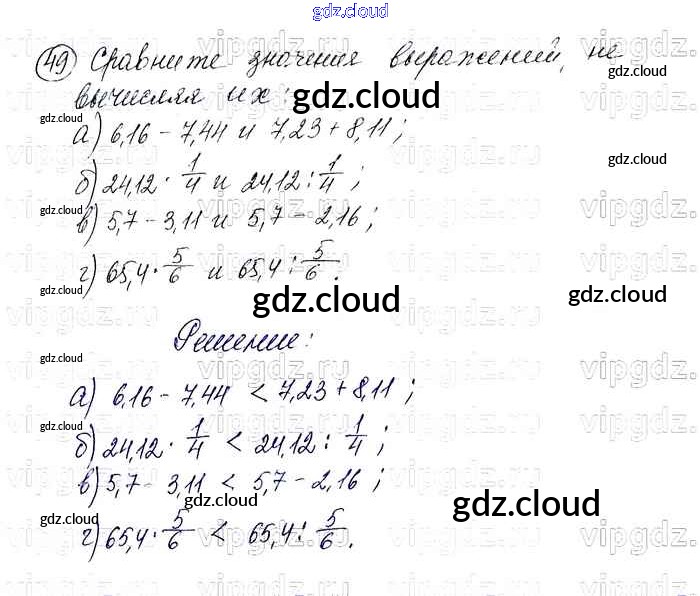 gdz.cloud
49 Сравните значения выражений, не
вычисляя их:
а) 6,16 - 7,44 и 7,23 + 8,11;
б) 24,12 · 1/4 и 24,12 : 1/4;
в) 5,7 - 3,11 и 5,7 - 2,16;
г) 65,4 · 5/6 и 65,4 : 5/6.
Решение:
а) 6,16 - 7,44 < 7,23 + 8,11;
б) 24,12 · 1/4 < 24,12 : 1/4;
в) 5,7 - 3,11 < 5,7 - 2,16;
г) 65,4 · 5/6 < 65,4 : 5/6.
gdz.cloud
gdz.cloud
gdz.cloud
gdz.cloud
gdz.cloud
gdz.cloud
gdz.cloud
gdz.cloud
gdz.cloud
gdz.cloud
gdz.cloud